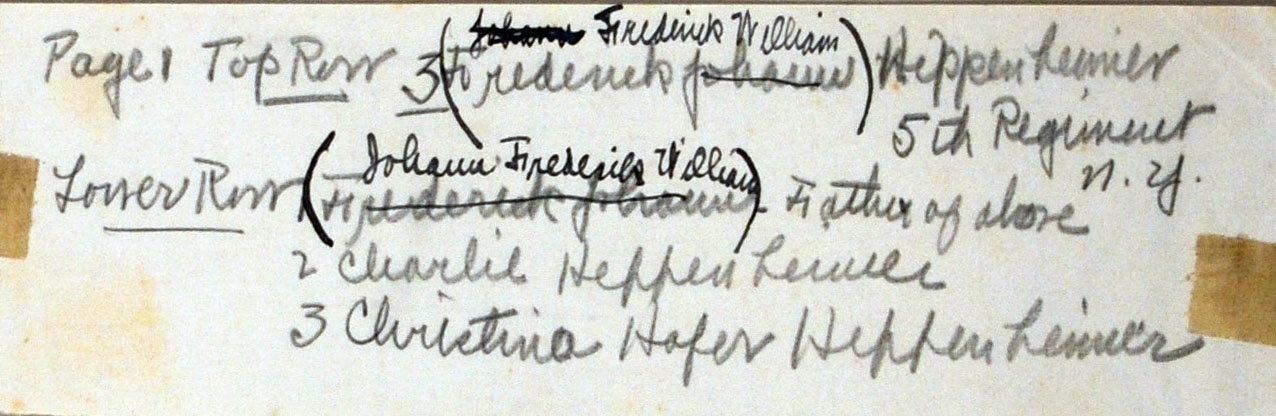 Johann Frederick William
Page 1 Top Row 3 (Frederick Johann) Heppenheimer
5th Regiment
N.Y.
Johann Frederick William
Lower Row 1 (Frederick Johann) - Father of above
2 Charlie Heppenheimer
3 Christina Hofer Heppenheimer